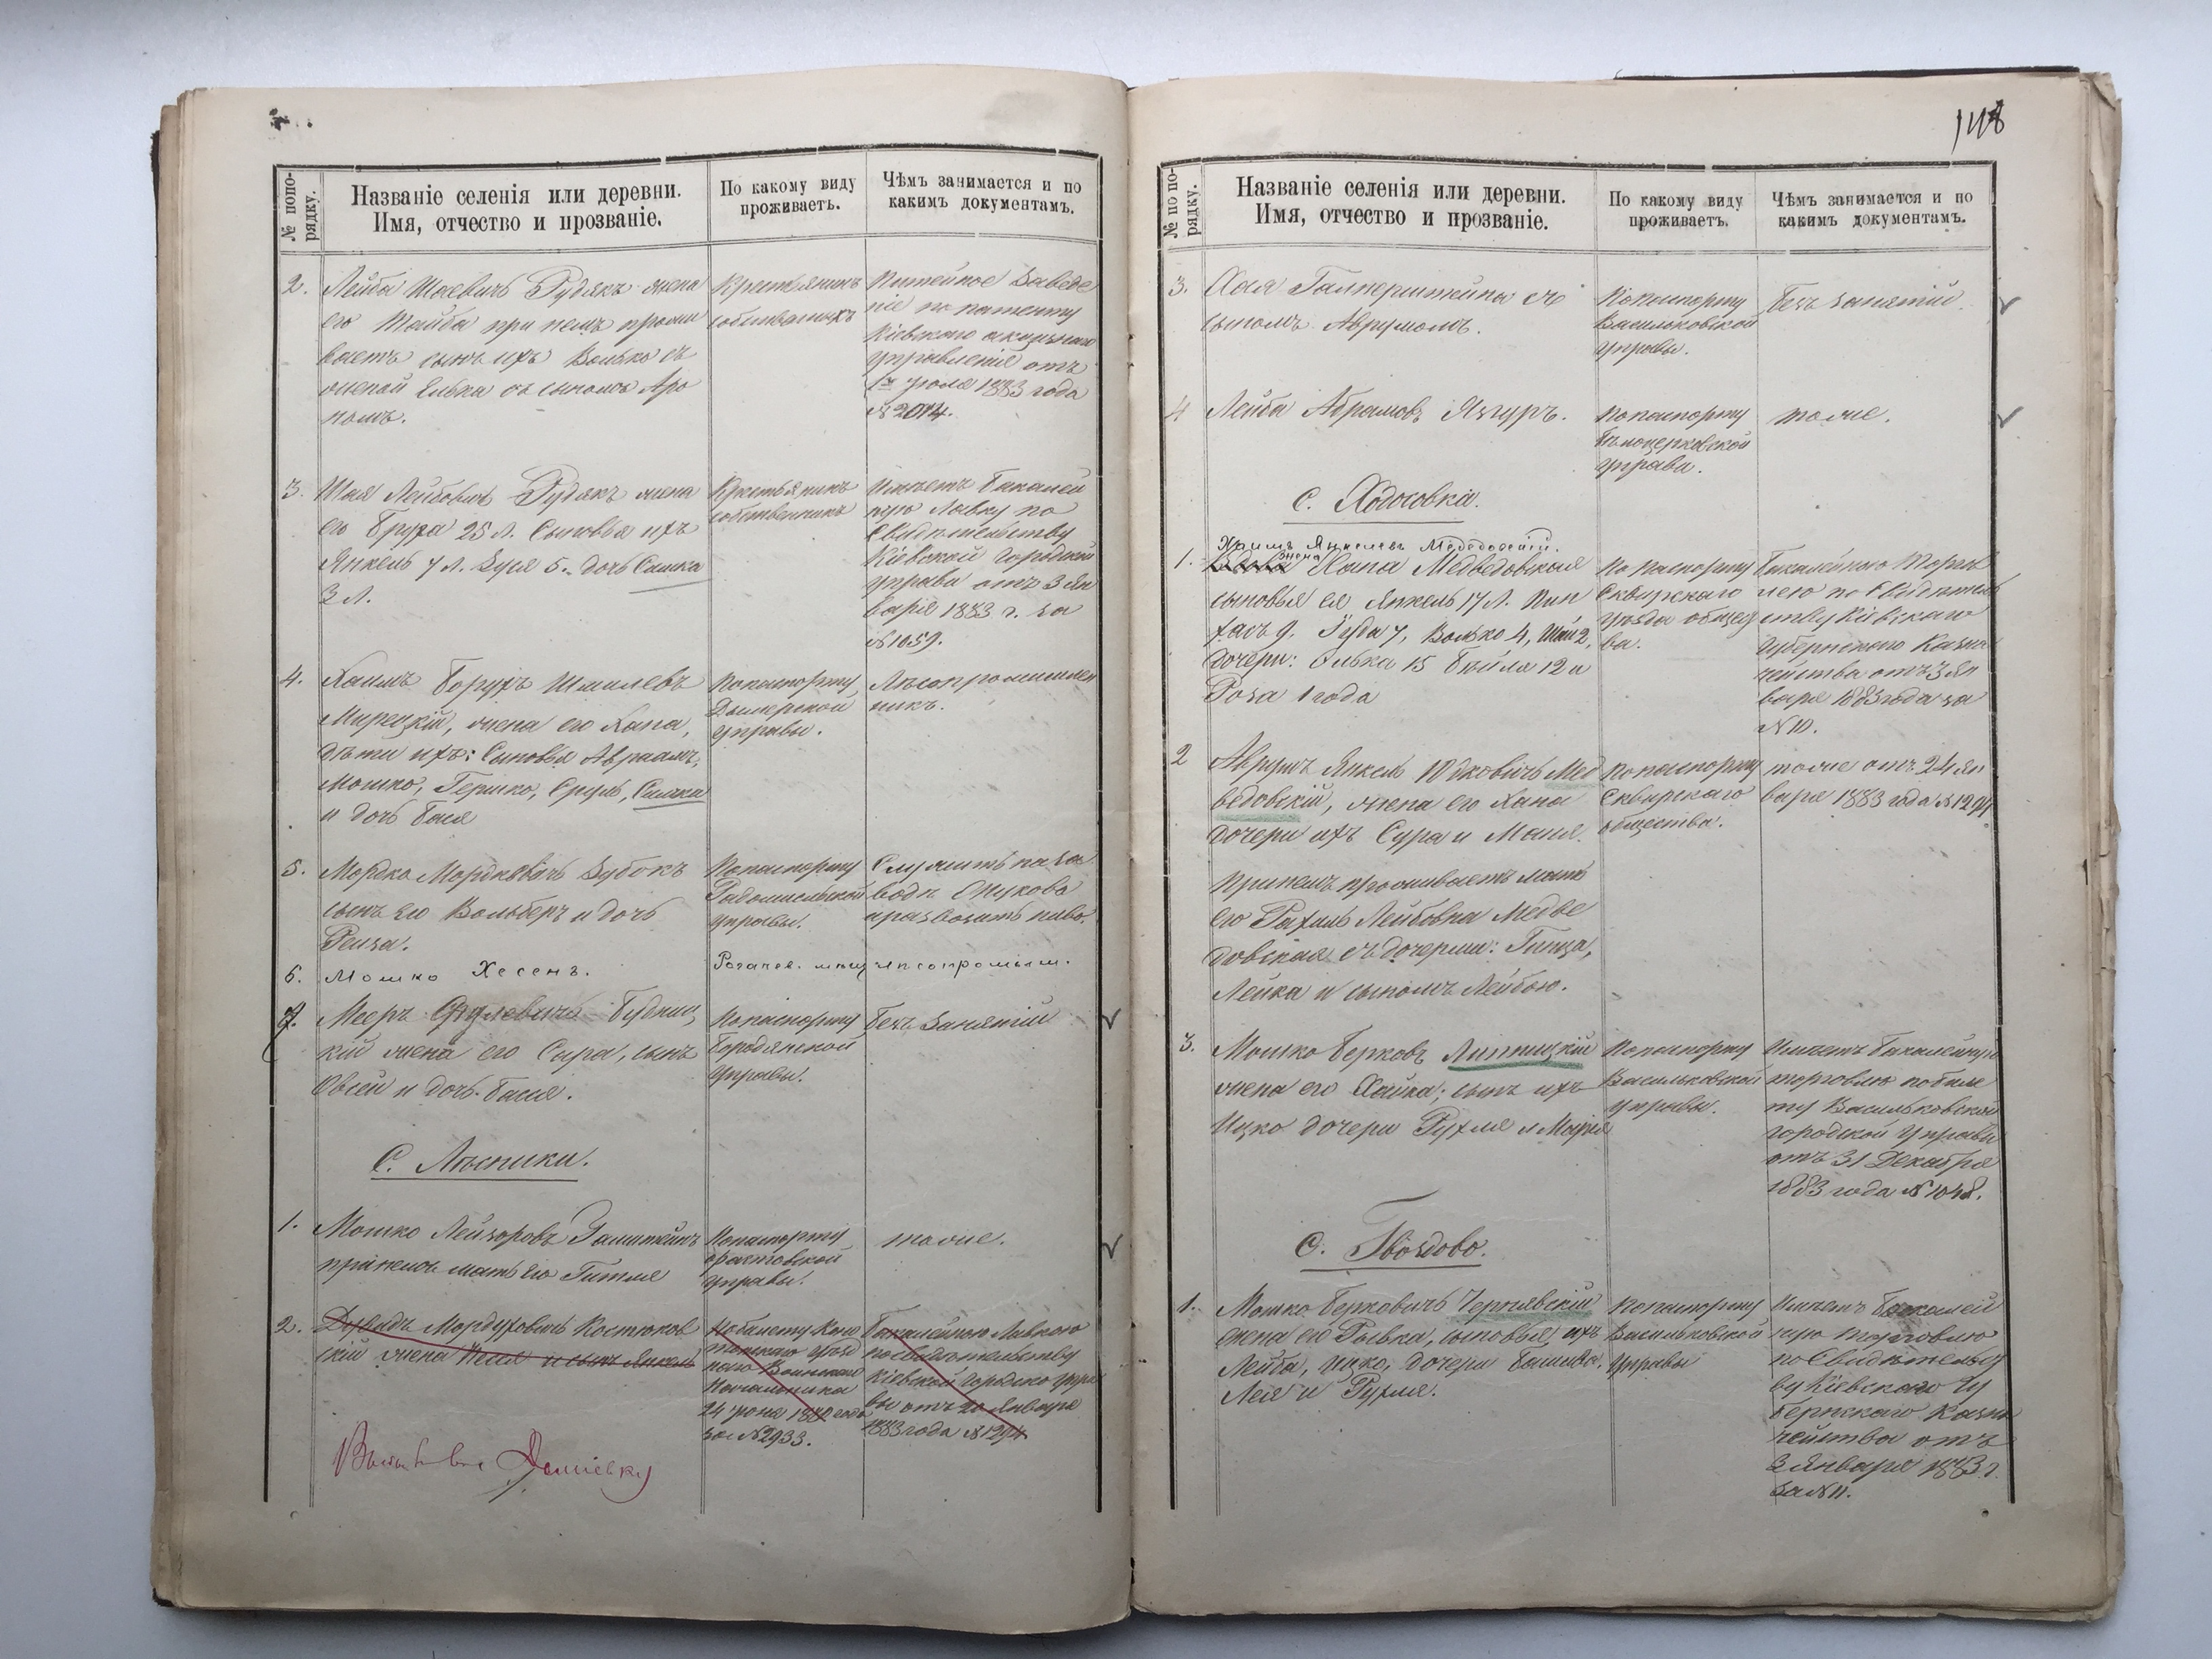 № попо-
рядку.
Названіе селенія или деревни.
Имя, отчество и прозваніе.
По какому виду
проживаетъ.
Чѣмъ занимается и по
какимъ документамъ.
2. Лейба Шаевичъ Рудякъ жена
его Тайба при немъ прожи
ваетъ сынъ ихъ Волько съ
женой Елька съ сыномъ Аро
номъ.
Крестьянинъ
Питейное заведе
ніе по патенту
Кіевскаго акцизнаго
управленія отъ
1го Іюля 1883 года
№ 2014.
3. Шая Лейбовъ Рудякъ жена
его Бруха 25 л. Сыновья ихъ
Янкель 7 л. Зуся 5. дочь Симка
3 л.
Крестьянинъ
собственникъ
Имѣетъ бакалей
ную лавку по
свидѣтельству
Кіевской городской
управы отъ 3 Ян
варя 1883 г. за
№ 1059.
4. Хаимъ Борухъ Шмилевъ
Мирецкій, жена его Хана,
дѣти ихъ: Сыновья Авраамъ,
Мошко, Гершко, Сруль,
и дочь Бася
По паспорту
Дымерской
управы.
Лѣсопромышлен
никъ.
5. Мордко Мордковичъ Зубокъ
сынъ его Вольберъ и дочь
Рейза.
По паспорту
Радомысльской
управы.
Служитъ на за
водѣ
и развозитъ пиво.
6. Мошко Хесенъ.
Рогачев. мѣщ
лѣсопромышл.
7. Мееръ Будниц
кій жена его Сара, сынъ
Овсей и дочь Бася.
По паспорту
Бородянской
управы.
Безъ занятій
С. Лѣсники.
1. Мошко Лейзоровъ
при немъ мать его Гитля
По паспорту
Фастовской
управы.
тоже.
2. Дувидъ Мордуховичъ Костюков
скій жена Песя и сынъ Янкель
По билету
наго Воинскаго
Начальника
24 Іюня года
за № 2933.
Бакалейною лавкою
по свидѣтельству
Кіевской городско упра
вы отъ 20 Января
1883 года № 1294
Демiевку
148
№ по по-
рядку.
Названіе селенія или деревни.
Имя, отчество и прозваніе.
По какому виду
проживаетъ.
Чѣмъ занимается и по
какимъ документамъ.
3. Хая Гальперштейна съ
сыномъ Аврумомъ.
По паспорту
Васильковской
управы.
Безъ занятій.
4 Лейба Абрамовъ Ягуръ.
По паспорту
Бѣлоцерковской
управы.
тоже.
С. Ходосовка.
Хаимъ Янкелевъ Медведовскій.
жена
1. Хана Медведовская
сыновья ея Янкель 17 л. Пин
хасъ 9. Іуда 7, Волько 4, Шая 2,
дочери: Элька 15 Бейла 12 и
Роза 1 года
По паспорту
Сквирскаго
уѣзда общест
ва.
Бакалейною Торгов
лею по свидѣтель
ству Кіевскаго
Губернскаго Казна
чейства отъ 3 Ян
варя 1883 года за
№ 10.
2 Аврумъ Янкель Юдковичъ Мед
ведовскій, жена его Хана
дочери ихъ Сура и Маня.
При немъ проживаетъ мать
его Рахиль Лейбовна Медве
довская съ дочерми:
Лейка и сыномъ Лейбою.
По паспорту
Сквирскаго
общества.
тоже отъ 24 Ян
варя 1883 года № 1294
3. Мошко Берковъ Липницкій
жена его Хайка; сынъ ихъ
Ицко дочери Рухля и Марія
По паспорту
Васильковской
управы.
Имѣетъ бакалейную
торговлю по биле
ту Васильковской
городской управы
отъ 31 Декабря
1883 года № 1048.
С. Гвоздово.
1. Мошко Берковичъ Чернявскій
жена его Рывка, сыновья ихъ
Лейба, Ицко, дочери Башева,
Лея и Рухля.
По паспорту
Васильковской
управы
Имѣетъ бакалей
ную торговлю
по Свидѣтельст
ву Кіевскаго Гу
бернскаго Казна
чейства отъ
3 Января 1883 г.
за № 11.